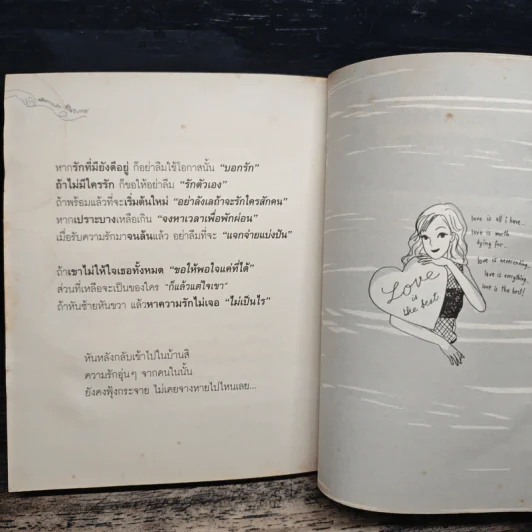 หากรักที่มียังดีอยู่ ก็อย่าลืมใช้โอกาสนั้น “บอกรัก”
ถ้าไม่มีใครรัก ก็ขอให้อย่าลืม “รักตัวเอง”
ถ้าพร้อมแล้วที่จะเริ่มต้นใหม่ “อย่าลังเลถ้าจะรักใครสักคน”
หากเปราะบางเหลือเกิน “จงหาเวลาเพื่อพักผ่อน”
เมื่อรับความรักมาจนล้นแล้ว อย่าลืมที่จะ “แจกจ่ายแบ่งปัน”
ถ้าเขาไม่ให้ใจเธอทั้งหมด “ขอให้พอใจแค่ที่ได้”
ส่วนที่เหลือจะเป็นของใคร “ก็แล้วแต่ใจเขา”
ถ้าหันซ้ายหันขวา แล้วหาความรักไม่เจอ “ไม่เป็นไร”
หันหลังกลับเข้าไปในบ้านสิ
ความรักอุ่นๆ จากคนในนั้น
ยังคงฟุ้งกระจาย ไม่เคยจางหายไปไหนเลย...
love is all i have..
love is worth
dying for...
love is neverending
love is everything.
love is the best!
Love
is
the best